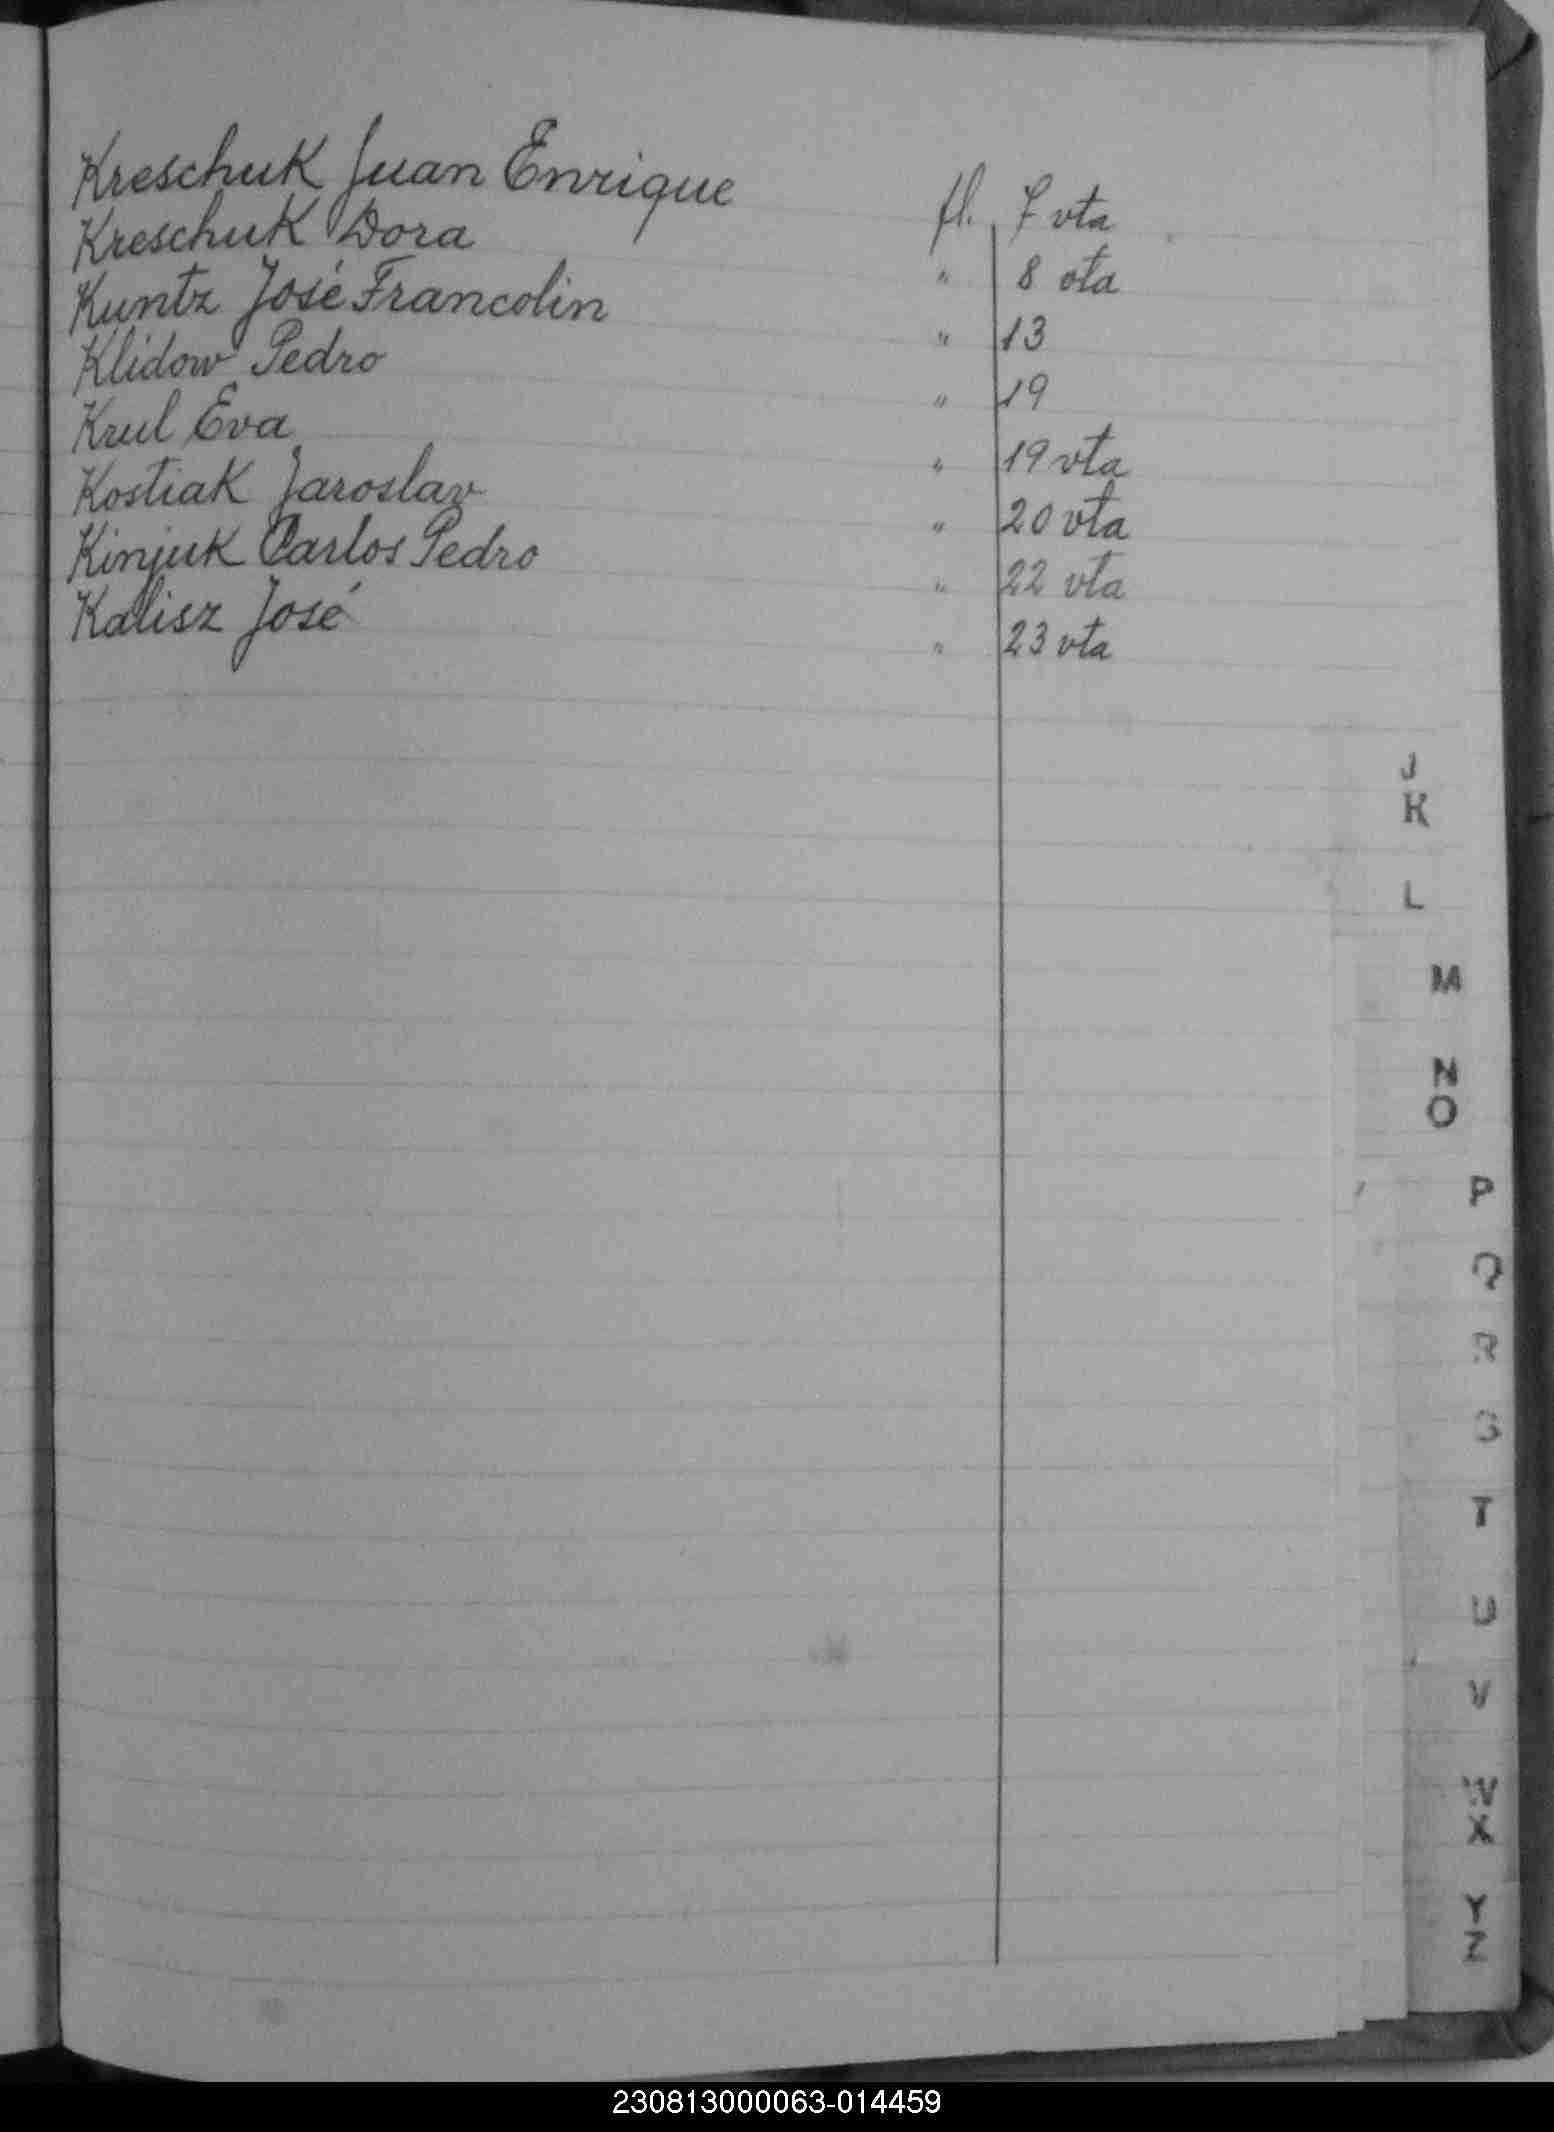 Kreschuk Juan Enrique fl. 7 vta
Kreschuk Dora " 8 vta
Kuntz José Francolin " 13
Klidow Pedro " 19
Krul Eva " 19 vta
Kostiak Jaroslav " 20 vta
Kinjuk Carlos Pedro " 22 vta
Kalisz José " 23 vta
J
K
L
M
N
O
P
Q
R
S
T
U
V
W
X
Y
Z
230813000063-014459